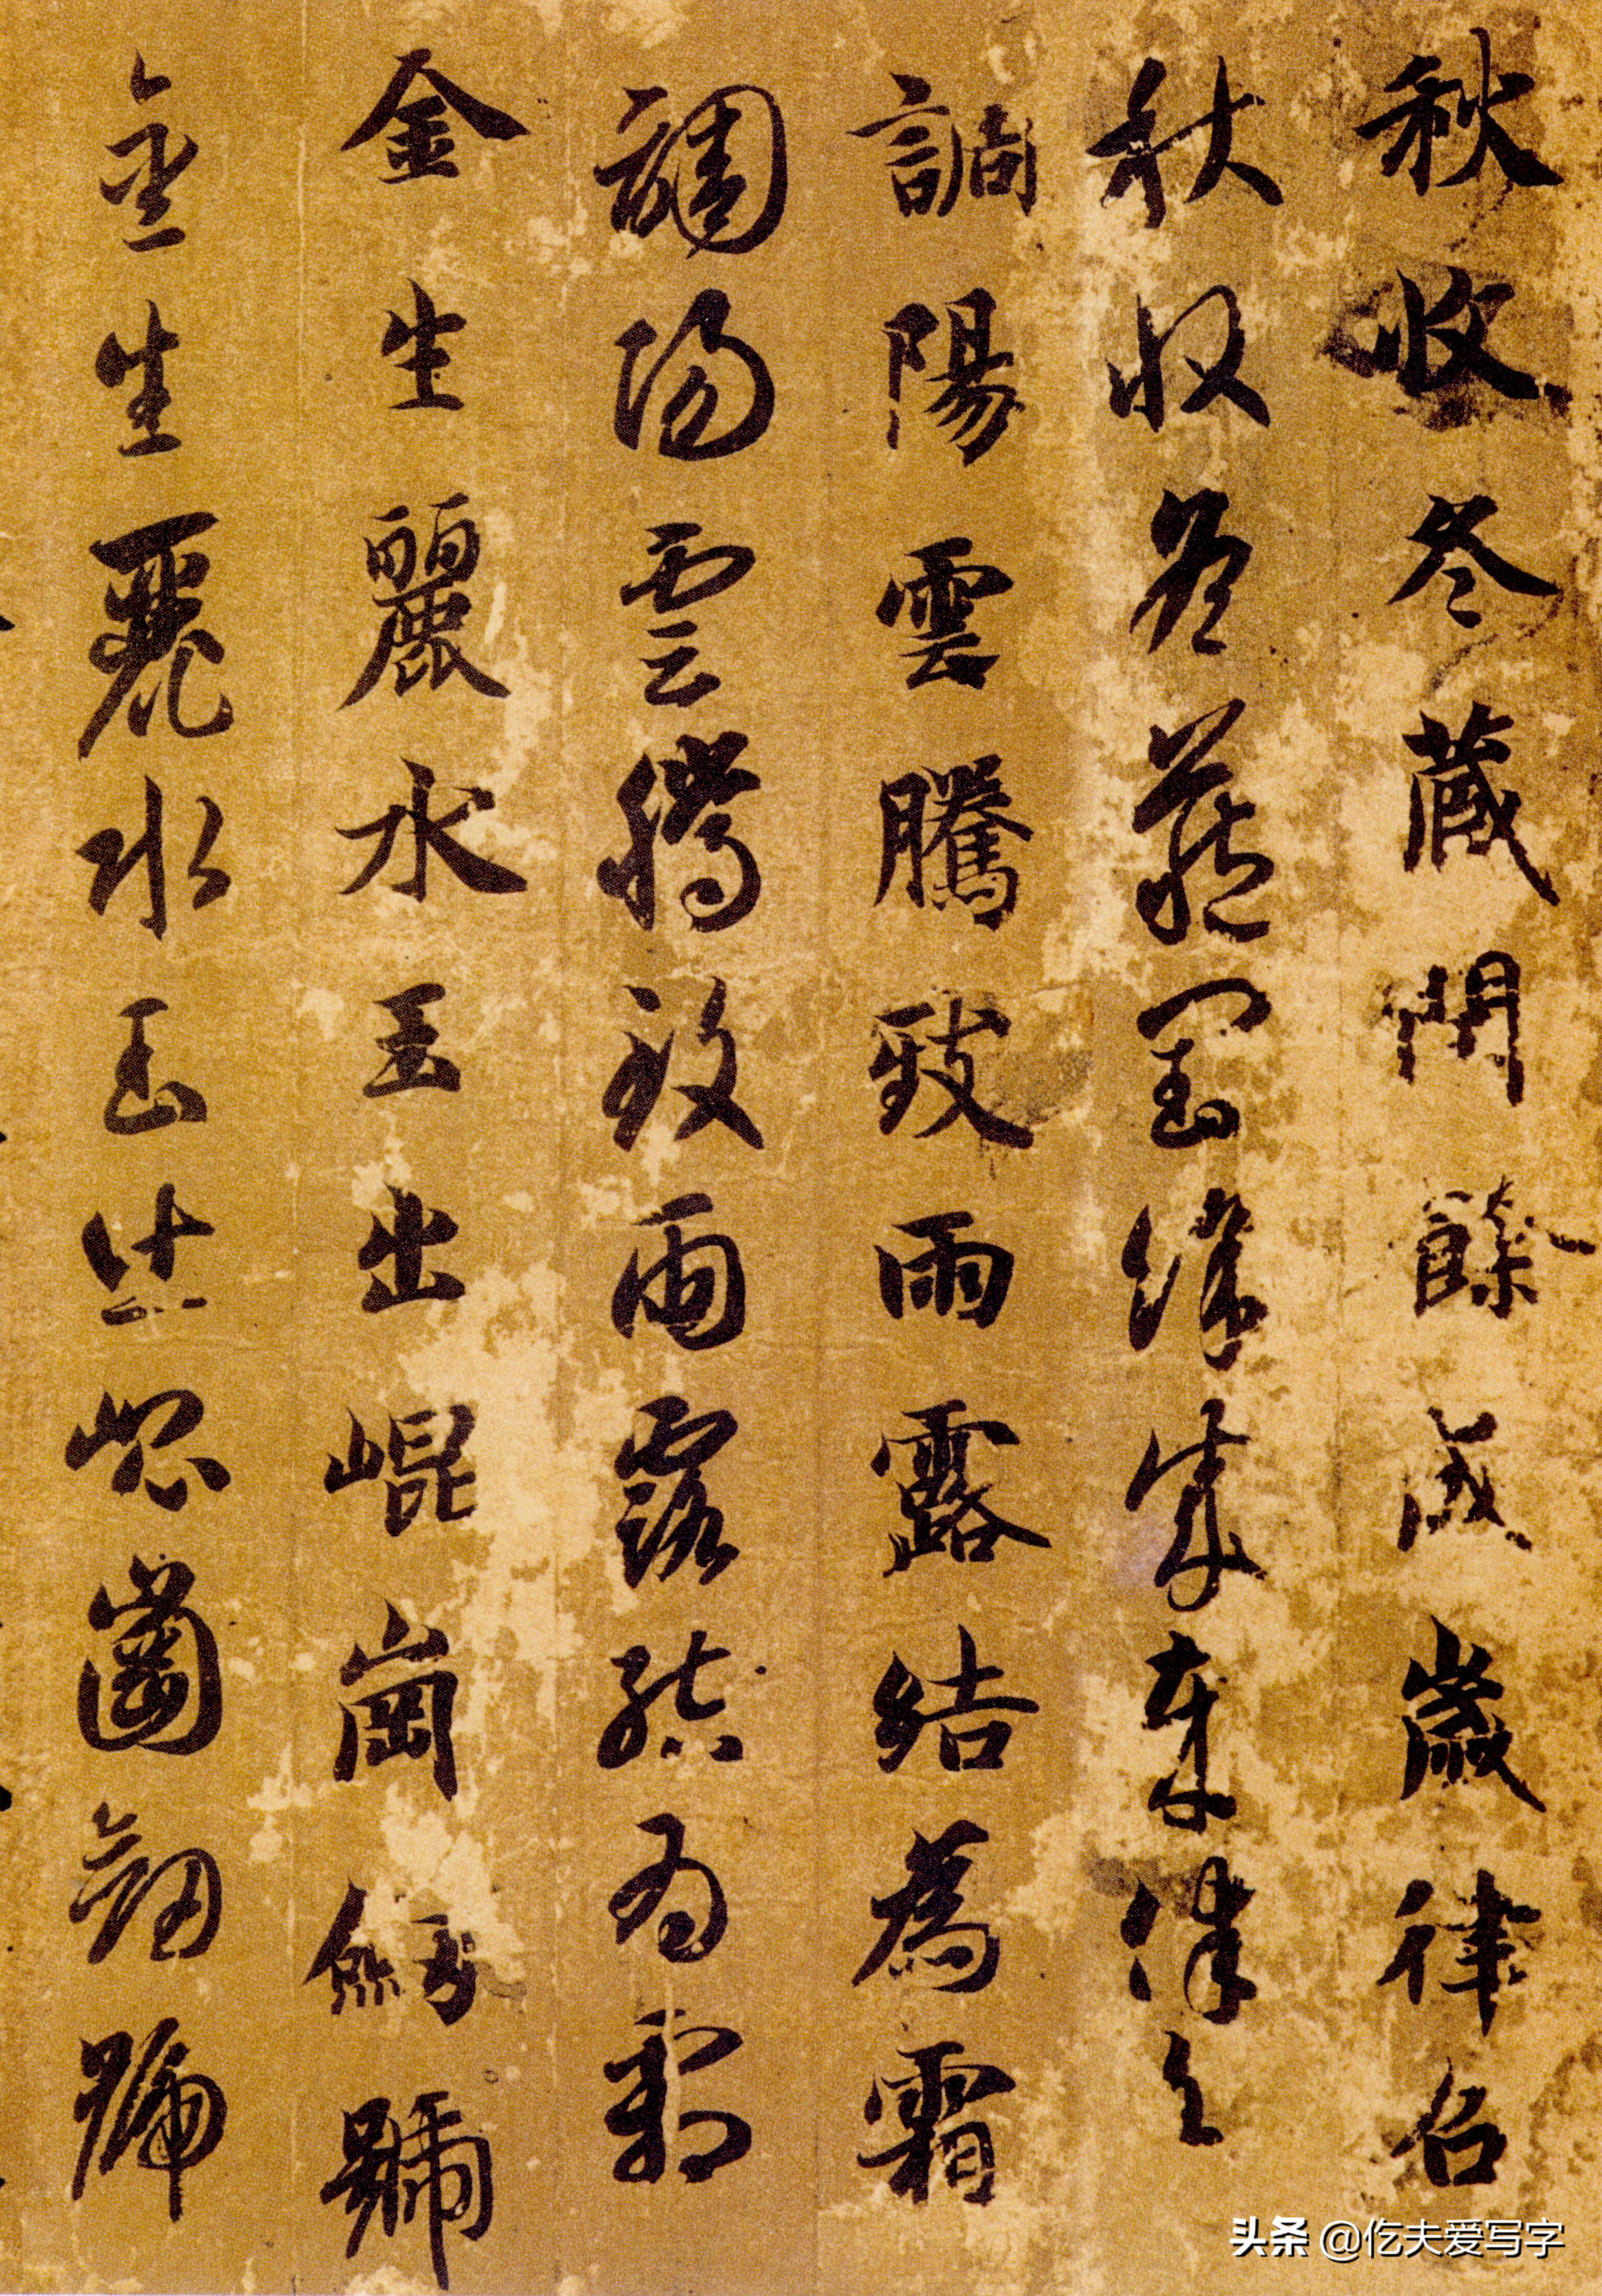 秋收冬藏閏餘成歲律召
秋收冬藏閏餘成歲律召
調陽雲騰致雨露結為霜
調陽雲騰致雨露結為霜
金生麗水玉出崐崗劔號
金生麗水玉出崐崗劔號
头条 @仡夫爱写字